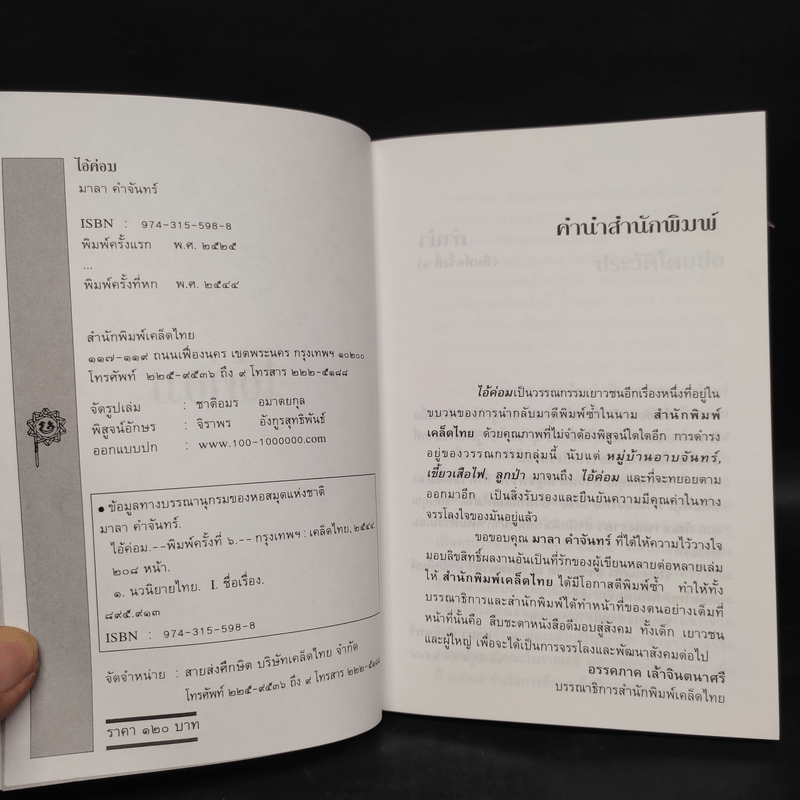 ไอ้ค่อม
มาลา คำจันทร์
ISBN : 974-315-598-8
พิมพ์ครั้งแรก พ.ศ. ๒๕๒๕
...
พิมพ์ครั้งที่หก พ.ศ. ๒๕๔๔
สำนักพิมพ์เคล็ดไทย
๑๑๗-๑๑๙ ถนนเฟื่องนคร เขตพระนคร กรุงเทพฯ ๑๐๒๐๐
โทรศัพท์ ๒๒๕-๙๕๓๖ ถึง ๙ โทรสาร ๒๒๒-๕๑๘๘
จัดรูปเล่ม : ชาติอมร อมาตยกุล
พิสูจน์อักษร : จิราพร อังกูรสุทธิพันธ์
ออกแบบปก : www.100-1000000.com
● ข้อมูลทางบรรณานุกรมของหอสมุดแห่งชาติ
มาลา คำจันทร์.
ไอ้ค่อม.--พิมพ์ครั้งที่ ๖.-- กรุงเทพฯ : เคล็ดไทย, ๒๕๔๔.
๒๐๘ หน้า.
๑. นวนิยายไทย. I. ชื่อเรื่อง.
๘๙๕.๙๑๓
ISBN : 974-315-598-8
จัดจำหน่าย : สายส่งศึกษิต บริษัทเคล็ดไทย จำกัด
โทรศัพท์ ๒๒๕-๙๕๓๖ ถึง ๙ โทรสาร ๒๒๒-๕๑๘๘
ราคา ๑๒๐ บาท
คำนำสำนักพิมพ์
ไอ้ค่อมเป็นวรรณกรรมเยาวชนอีกเรื่องหนึ่งที่อยู่ใน
ขบวนของการนำกลับมาตีพิมพ์ซ้ำในนาม สำนักพิมพ์
เคล็ดไทย ด้วยคุณภาพที่ไม่จำต้องพิสูจน์ใดใดอีก การดำรง
อยู่ของวรรณกรรมกลุ่มนี้ นับแต่ หมู่บ้านอาบจันทร์,
เขี้ยวเสือไฟ, ลูกป่า มาจนถึง ไอ้ค่อม และที่จะทยอยตาม
ออกมาอีก เป็นสิ่งรับรองและยืนยันความมีคุณค่าในทาง
จรรโลงใจของมันอยู่แล้ว
ขอขอบคุณ มาลา คำจันทร์ ที่ได้ให้ความไว้วางใจ
มอบลิขสิทธิ์ผลงานอันเป็นที่รักของผู้เขียนหลายต่อหลายเล่ม
ให้ สำนักพิมพ์เคล็ดไทย ได้มีโอกาสตีพิมพ์ซ้ำ ทำให้ทั้ง
บรรณาธิการและสำนักพิมพ์ได้ทำหน้าที่ของตนอย่างเต็มที่
หน้าที่นั้นคือ สืบชะตาหนังสือดีมอบสู่สังคม ทั้งเด็ก เยาวชน
และผู้ใหญ่ เพื่อจะได้เป็นการจรรโลงและพัฒนาสังคมต่อไป
อรรคภาค เล้าจินตนาศรี
บรรณาธิการสำนักพิมพ์เคล็ดไทย